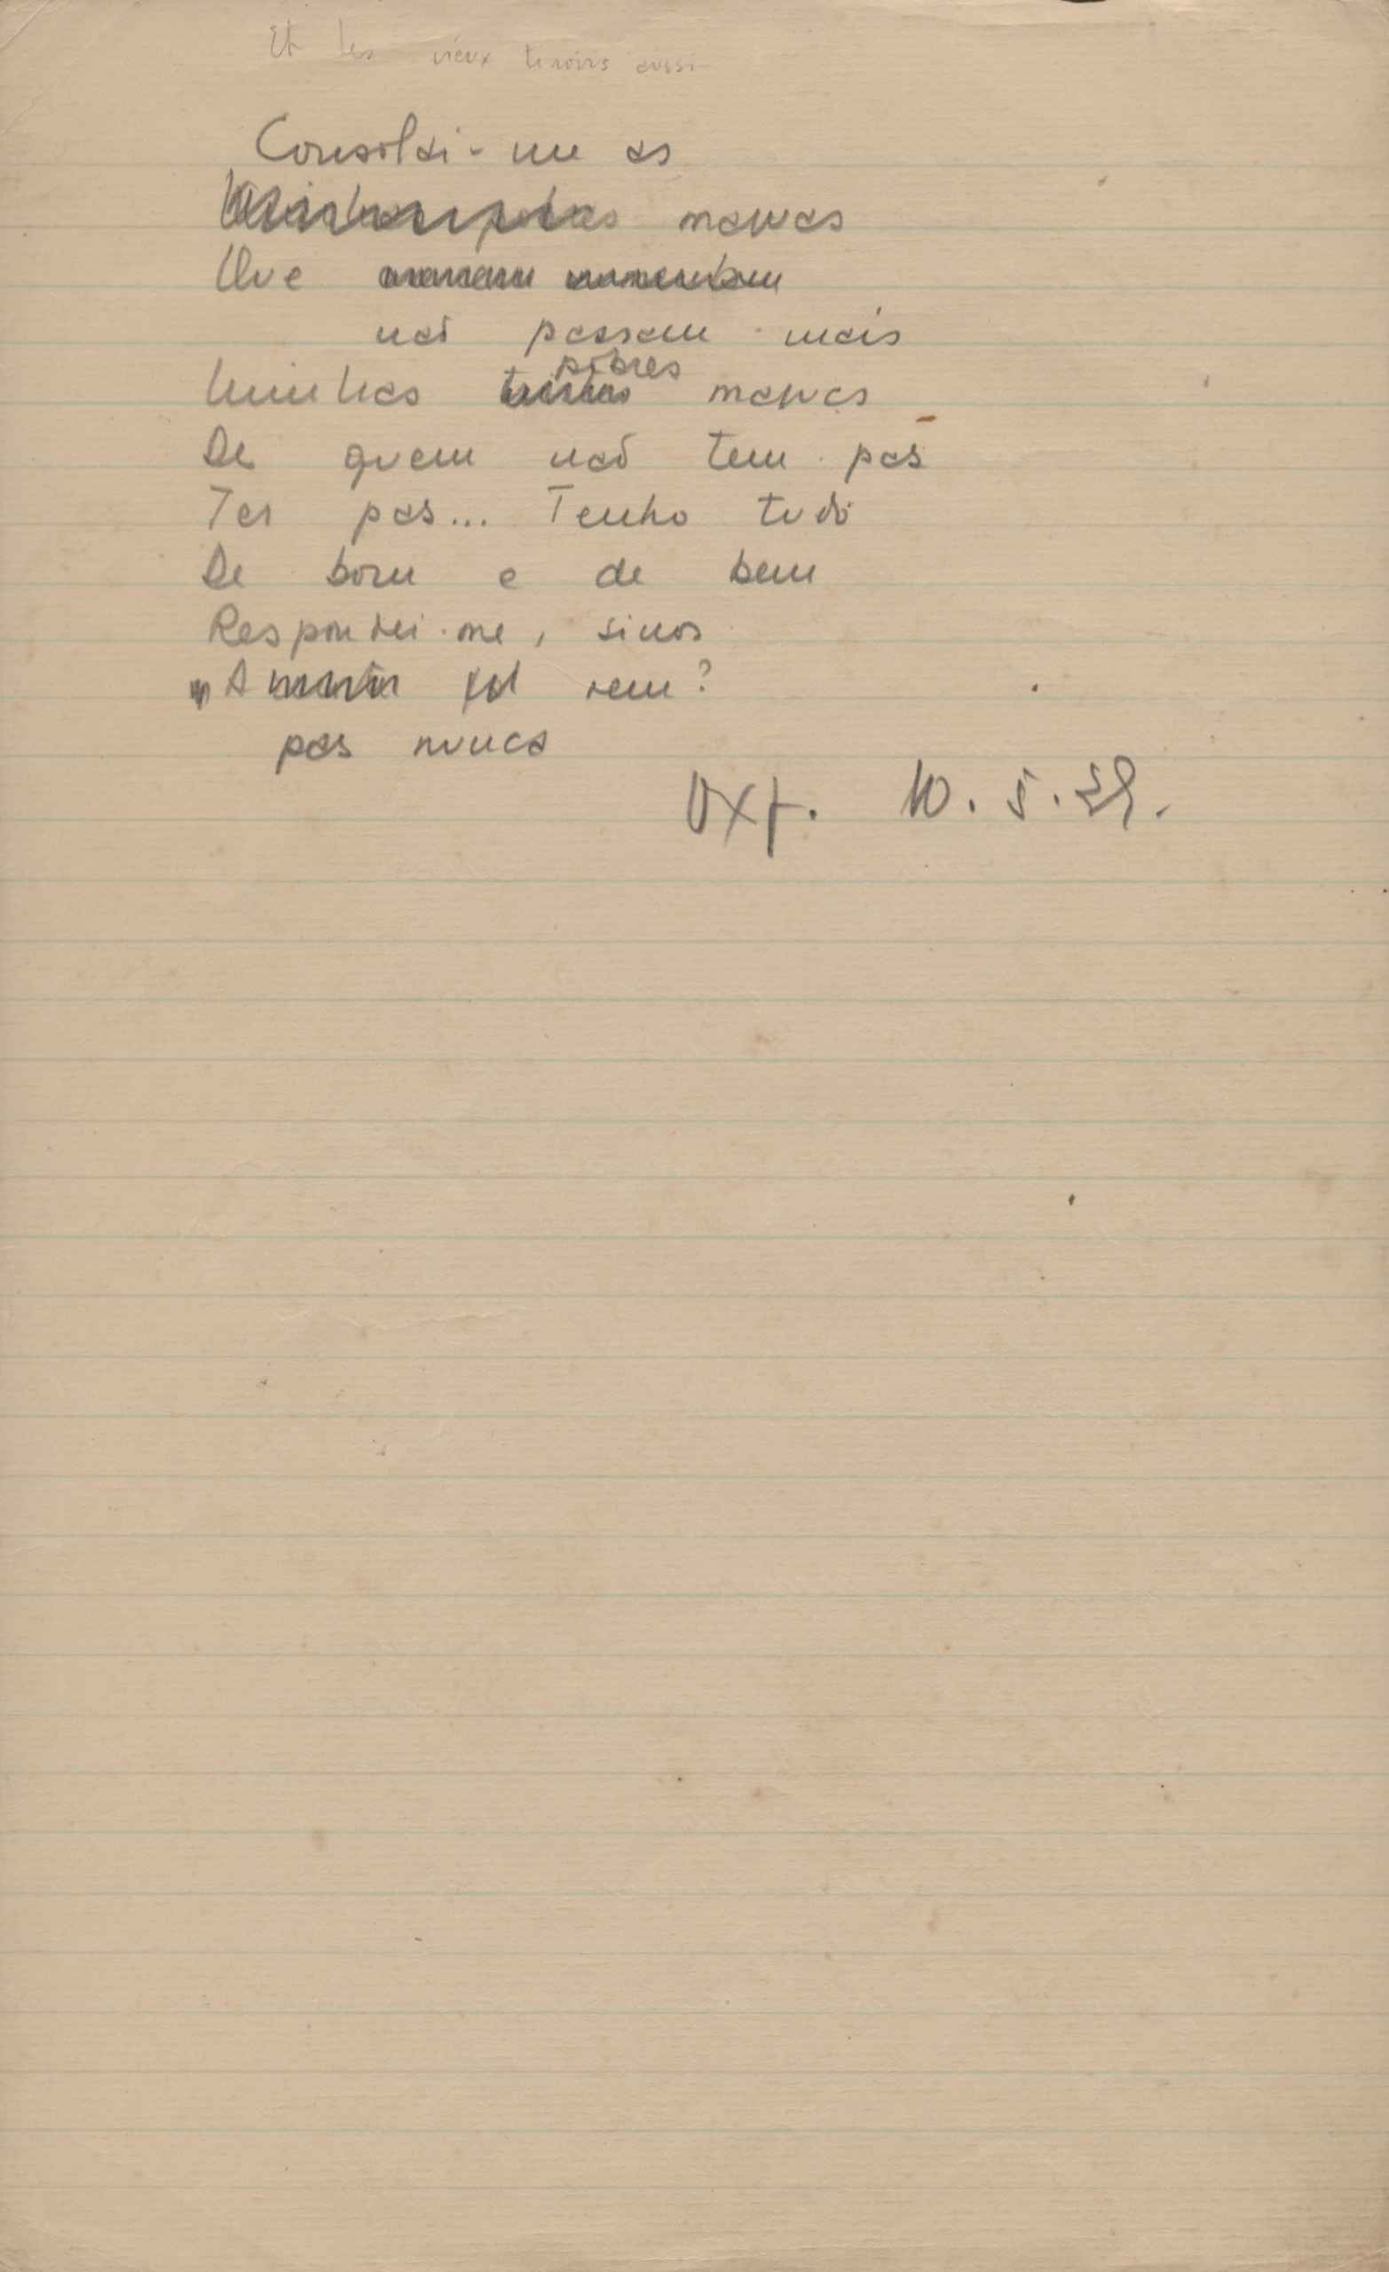 Et les vieux tiroirs aussi
Consolai-me as
manas
Que
não passam mais
pobres
Minhas manas
De quem não tem pas
Ter pas... Tenho tudo
De bom e de bem
Respondei-me, sinos
A vem?
pas nunca
Oxf. 10.5.39.